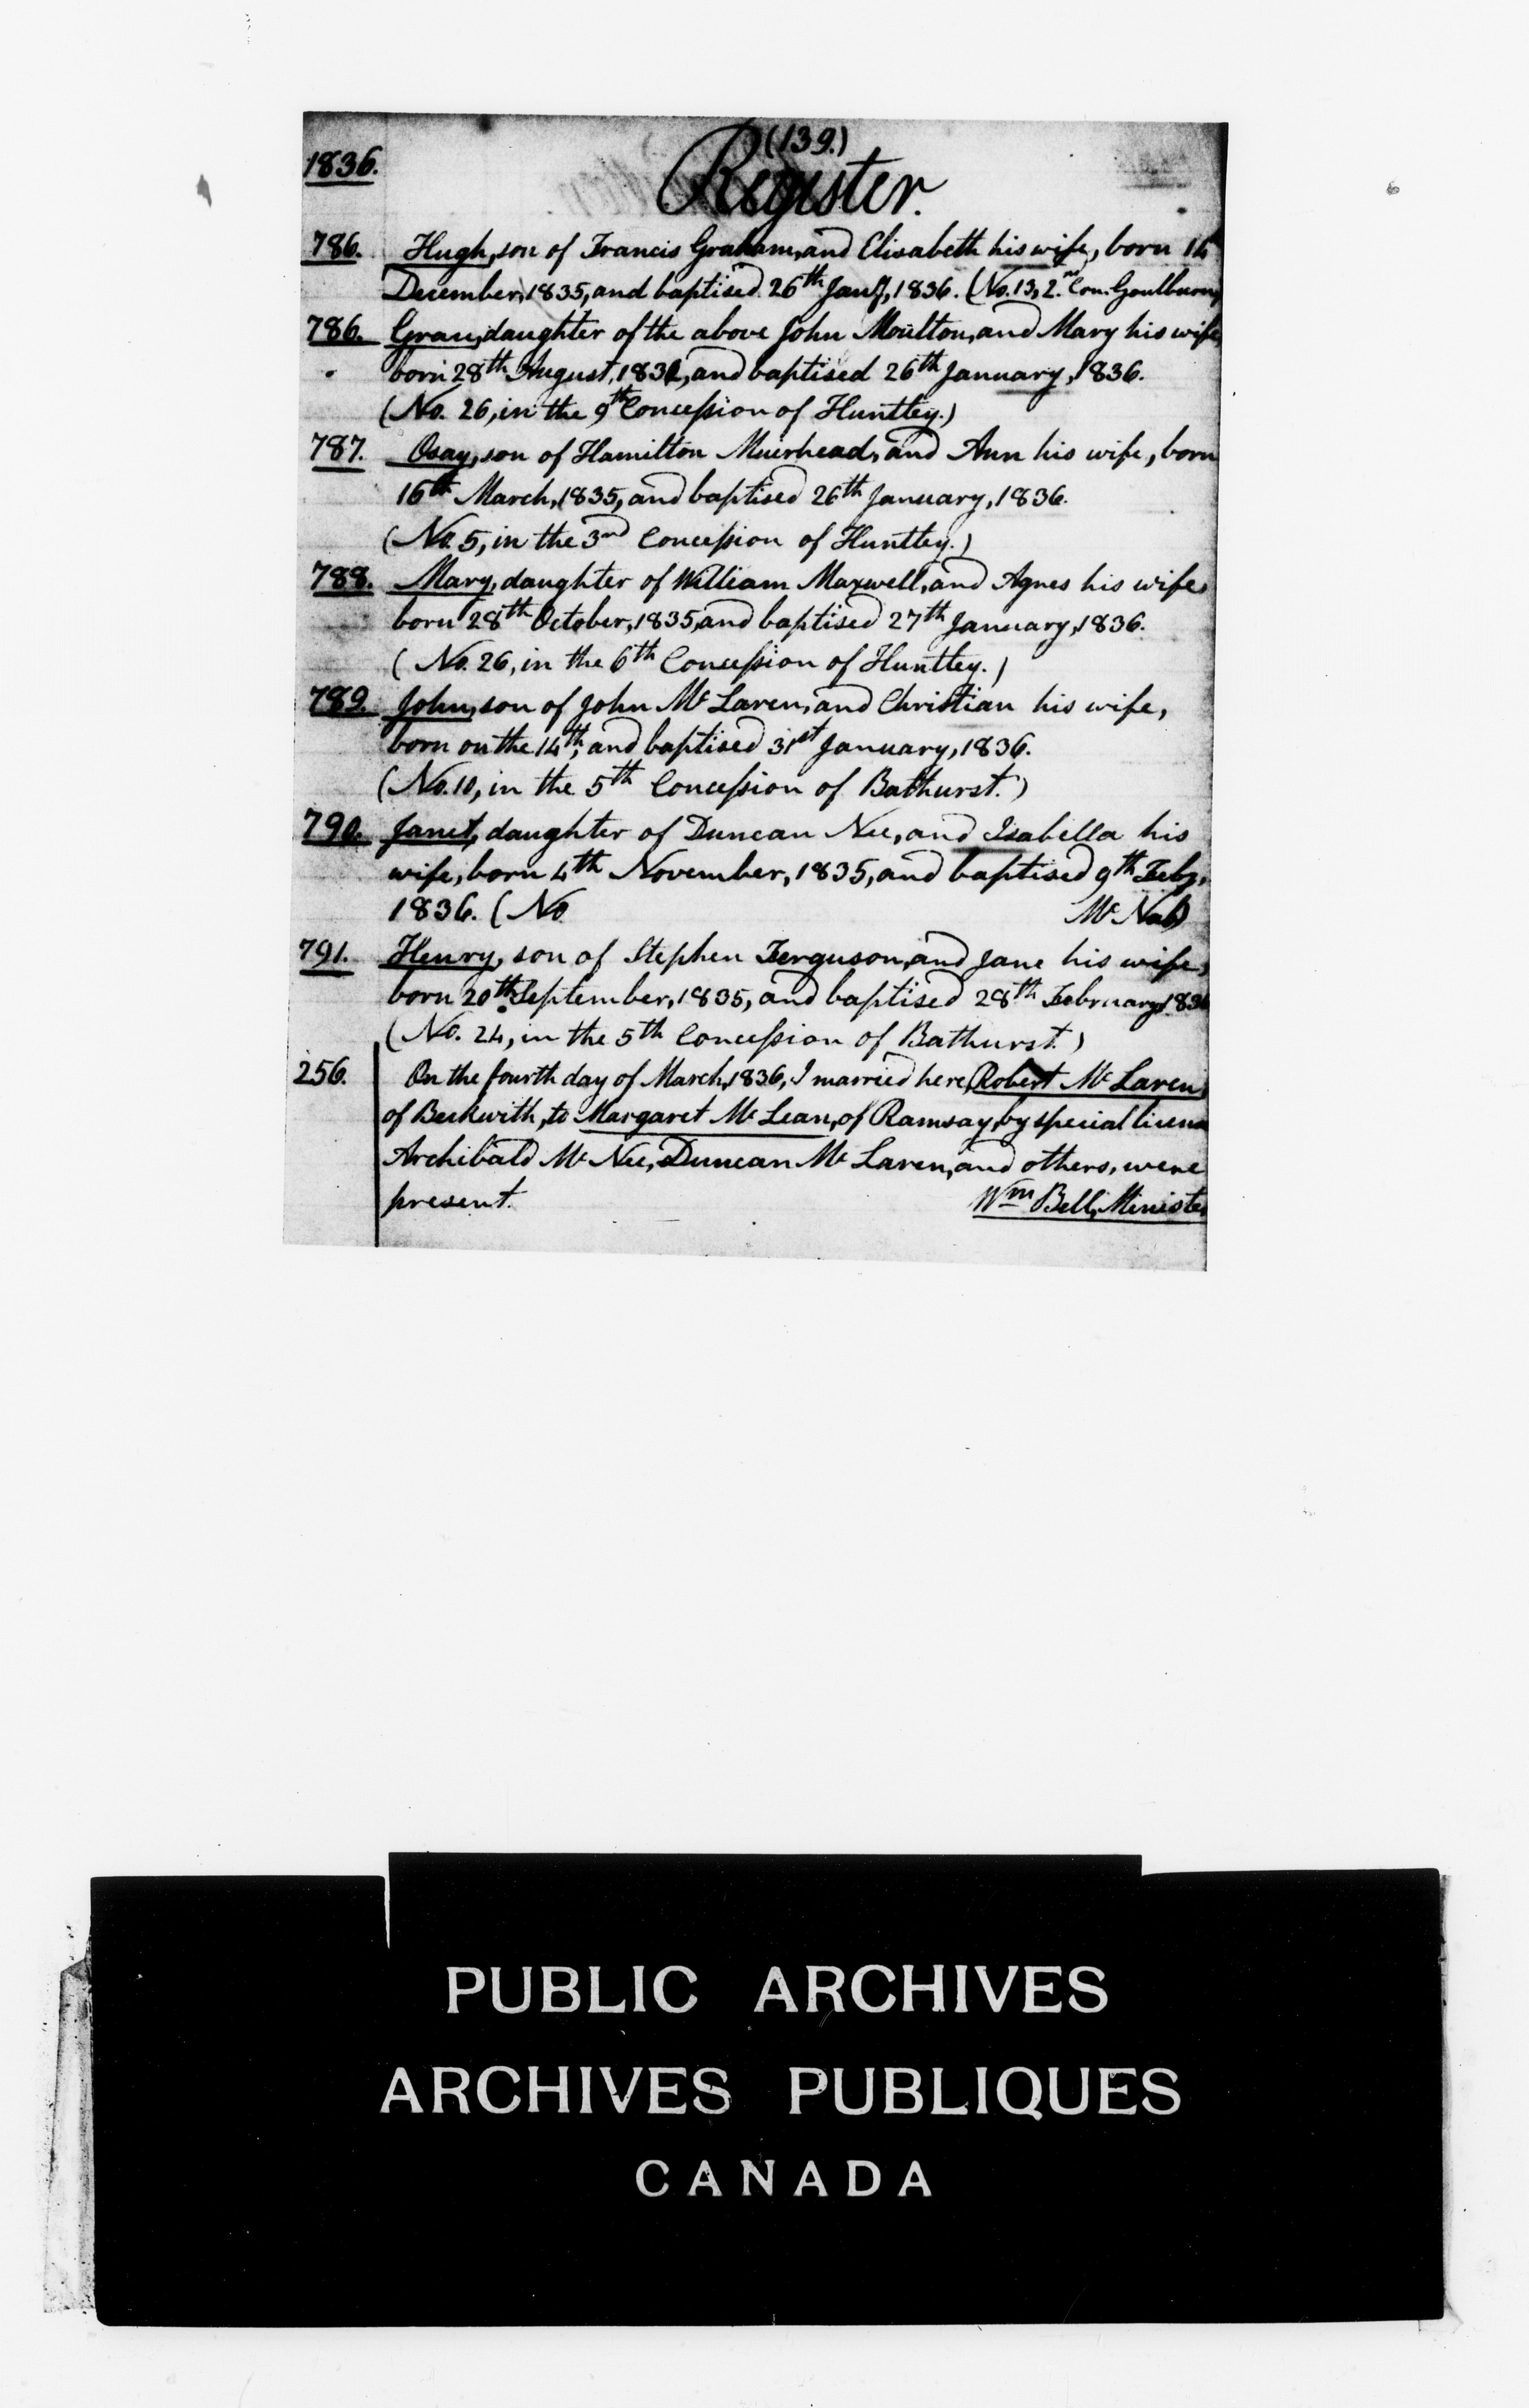 (139.)
1836.
Register.
786. Hugh, son of Francis Graham, and Elisabeth his wife, born 14
December, 1835, and baptised 26th Jany, 1836. (No. 13, 2nd Con. Goulburn)
786. Grace, daughter of the above John Moulton, and Mary his wife,
born 28th August, 1832, and baptised 26th January, 1836.
(No. 26, in the 9th Concession of Huntley.)
787. Osay, son of Hamilton Muirhead, and Ann his wife, born
16th March, 1835, and baptised 26th January, 1836.
(No. 5, in the 3rd Concession of Huntley.)
788. Mary, daughter of William Maxwell, and Agnes his wife,
born 28th October, 1835, and baptised 27th January, 1836.
(No. 26, in the 6th Concession of Huntley.)
789. John, son of John Mc Laren, and Christian his wife,
born on the 14th, and baptised 31st January, 1836.
(No. 10, in the 5th Concession of Bathurst.)
790. Janet, daughter of Duncan Nee, and Isabella his
wife, born 4th November, 1835, and baptised 9th Feby,
1836. (No. Mc Nab)
791. Henry, son of Stephen Ferguson, and Jane his wife,
born 20th September, 1835, and baptised 28th February, 1836
(No. 24, in the 5th Concession of Bathurst.)
256. On the fourth day of March, 1836, I married here, Robert Mc Laren,
of Beckwith, to Margaret Mc Lean, of Ramsay, by special licence
Archibald Mc Nee, Duncan Mc Laren, and others, were
present. Wm Bell, Minister
PUBLIC ARCHIVES
ARCHIVES PUBLIQUES
CANADA